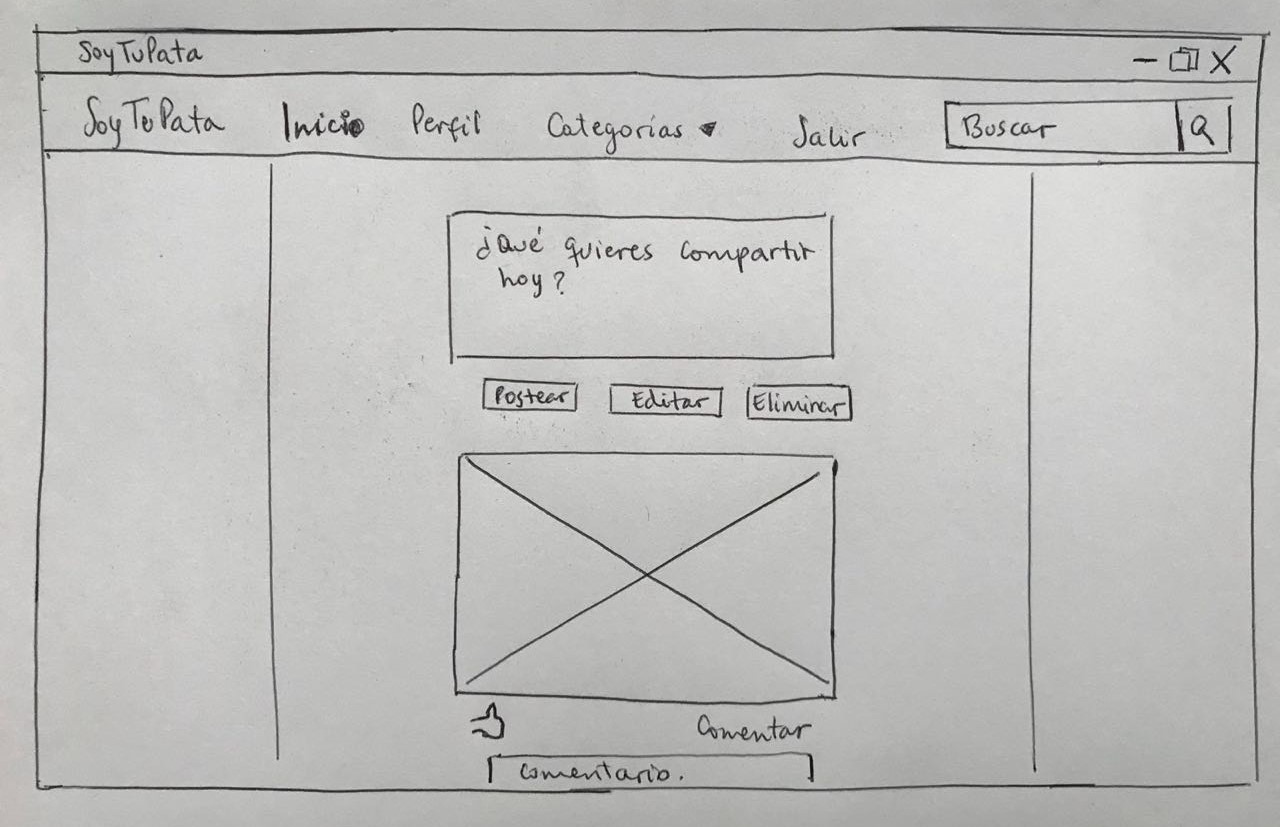 SoyTuPata
SoyTuPata Inicio Perfil Categorías Salir Buscar
¿Qué quieres compartir
hoy?
Postear Editar Eliminar
Comentar
Comentario.